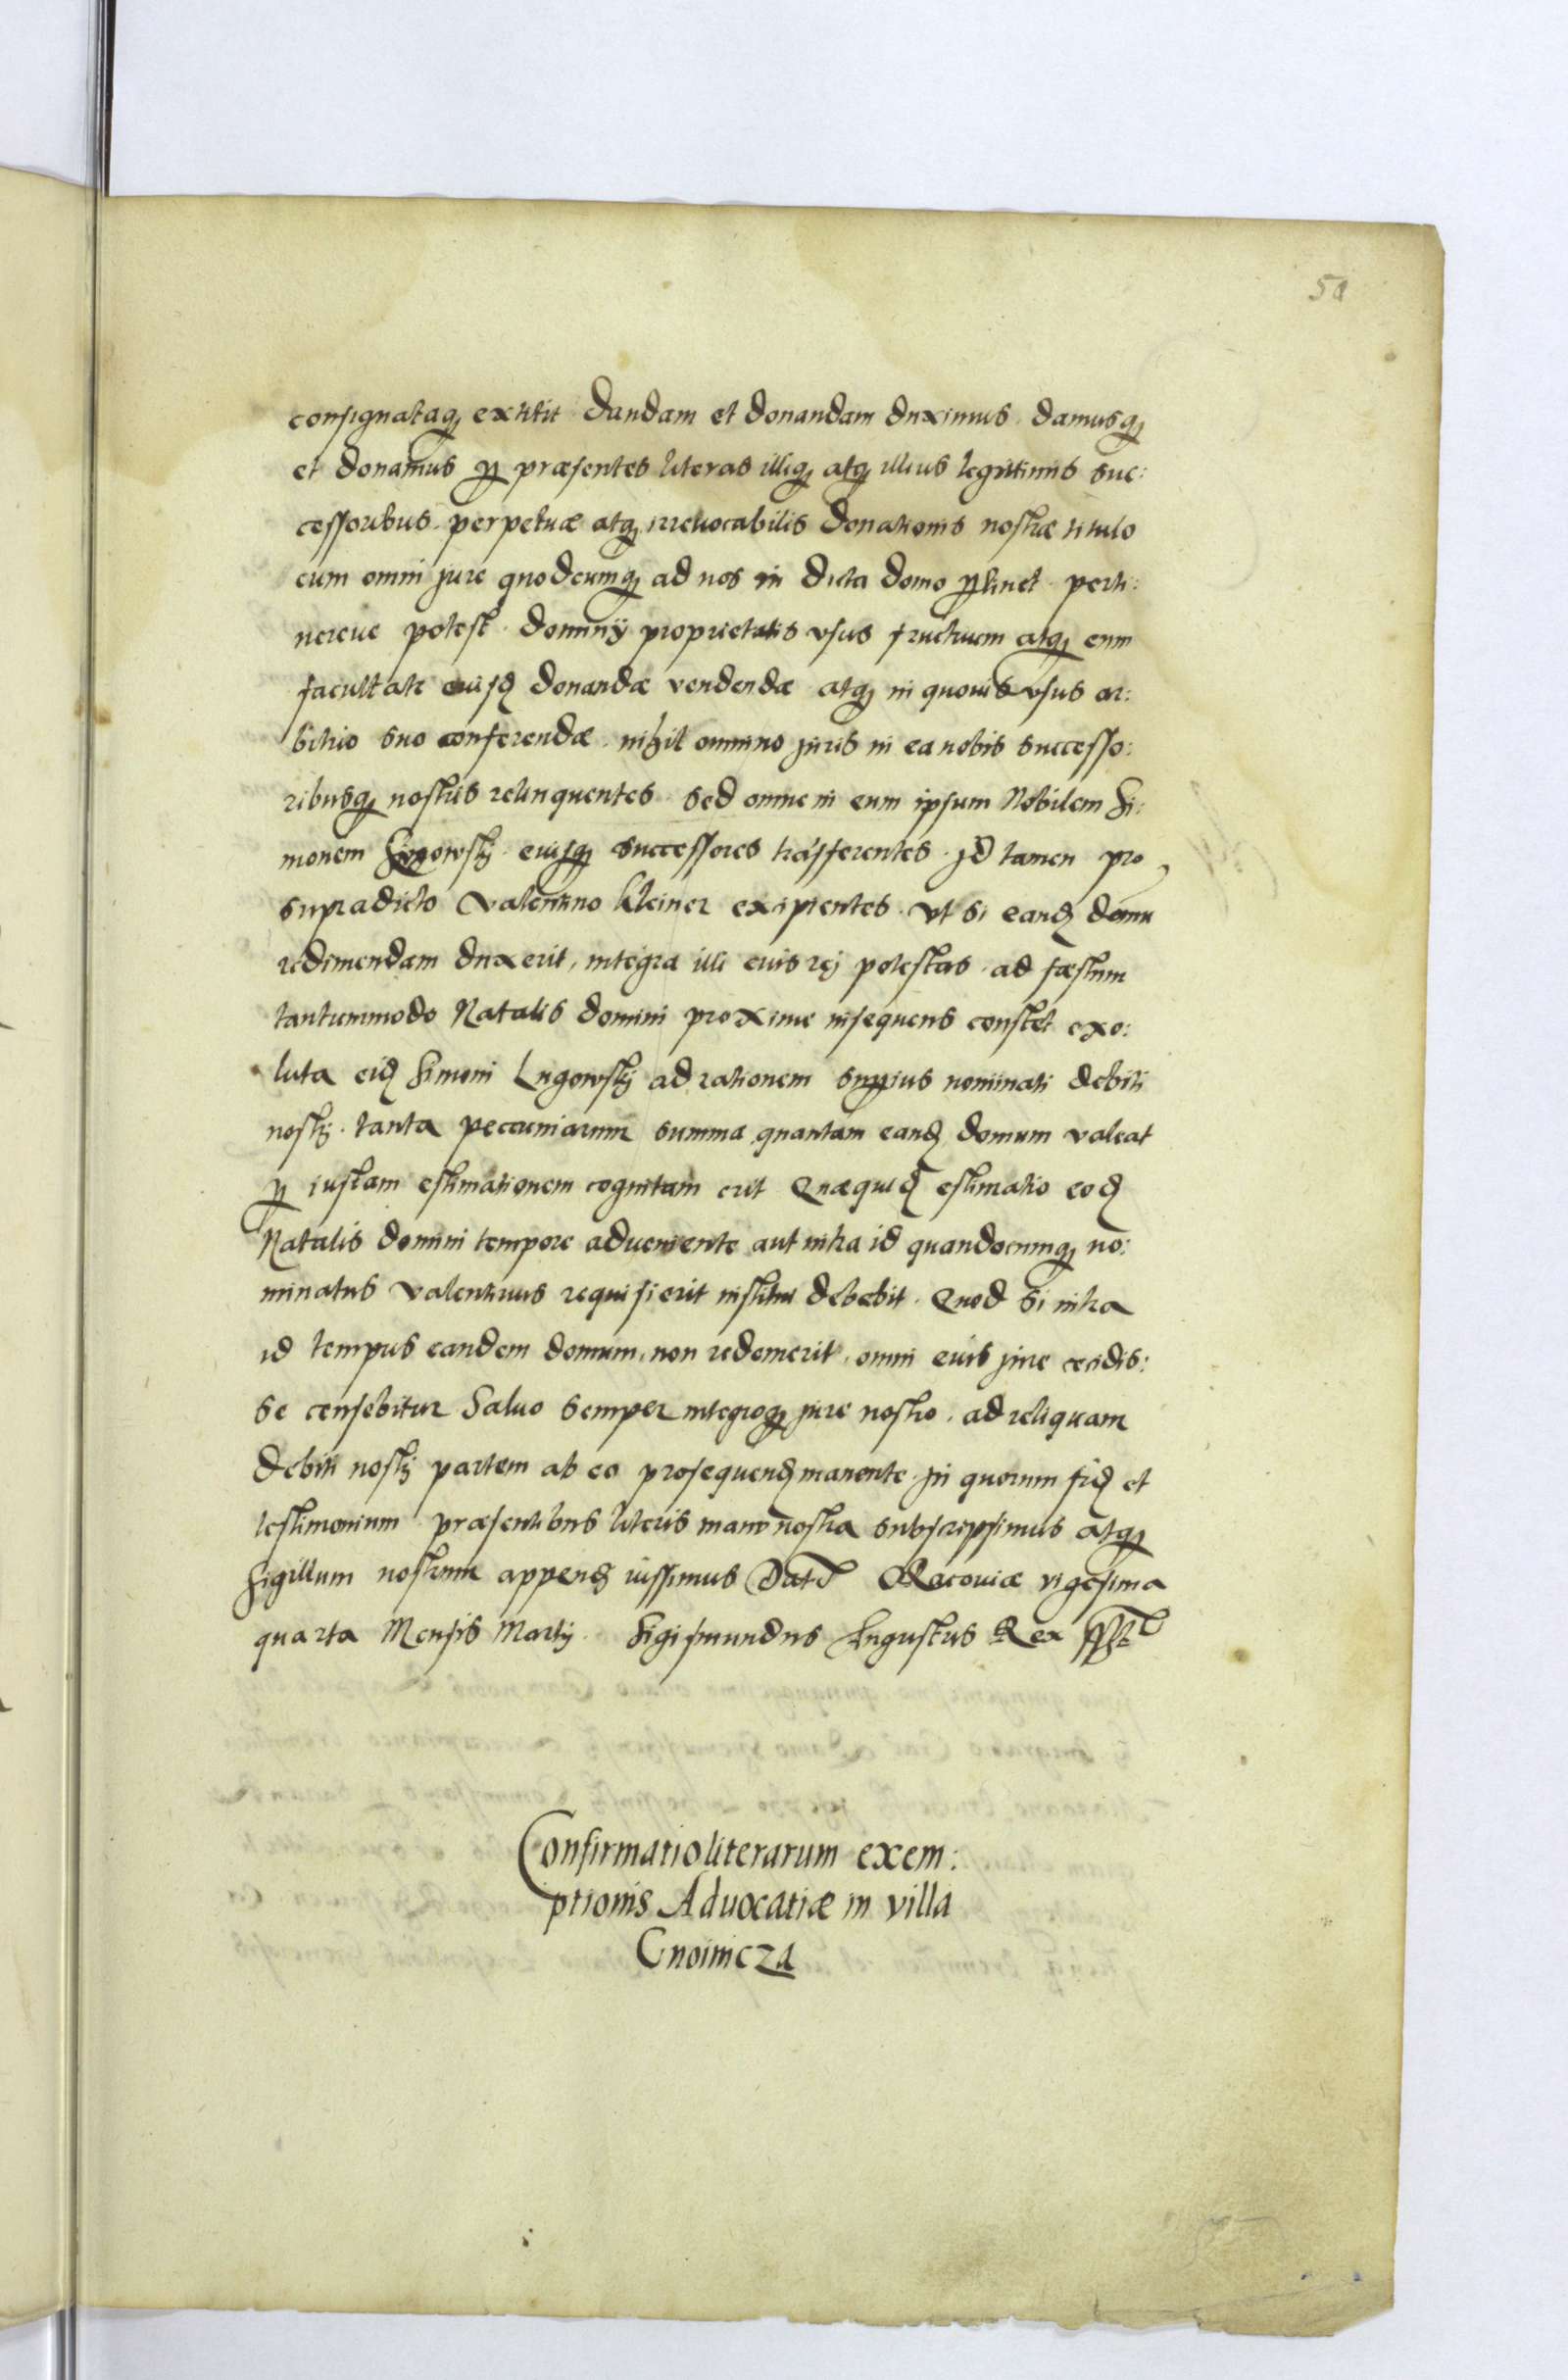 50
consignataq; extitit Dandam et donandam duximus. damusq;
et donamus p præsentes literas illiq; atq; illius legittimis suc:
cessoribus. perpetuæ atq; irreuocabilis Donationis nostræ titulo
cum omni jure quodcumq; ad nos in dicta domo ptinet. perti:
nereue potest. dominÿ proprietatis vsus fructuum atq; cum
facultate euisd donandæ vendendæ atq; in quouis vsus ar:
bitrio suo conferendæ. nihil omnino juris in ea nobis successo:
ribusq; nostris relinquentes. sed omne in eum ipsum Nobilem Si:
monem Lugowskj euisq; successores trasferentes. jd tamen pro
supradicto Valentino Kleiner excipientes. vt si eand domu
redimendam duxerit, integra illi euis rej potestas. ad fæstum
tantummodo Natalis domini proxime insequens constet exo:
luta eid Simoni Lugowskj ad rationem suppius nominati debiti
nostrj. tanta pecuniarum summa quantam eand domum valeat
p iustam estimationem cognitam erit Quæquid estimatio eod
Natalis domini tempore adueniente aut intra id quandocumq; no:
minatus Valentinus requisierit institui debebit. Quod si intra
id tempus eandem domum, non redemerit, omni euis jure cecidis:
se censebitur Saluo semper integroq; jure nostro. ad reliquam
debiti nostrj partem ab eo prosequend manente. jn quorum fid et
testimonium præsentibus literis manu nostra subscripsimus atq;
Sigillum nostrum append iussimus Dat Cracouiæ vigesima
quarta Mensis Martij. Sigismundus Augustus Rex sspt
Confirmatio literarum exem:
ptionis Aduocatiæ in villa
Gnoinicza